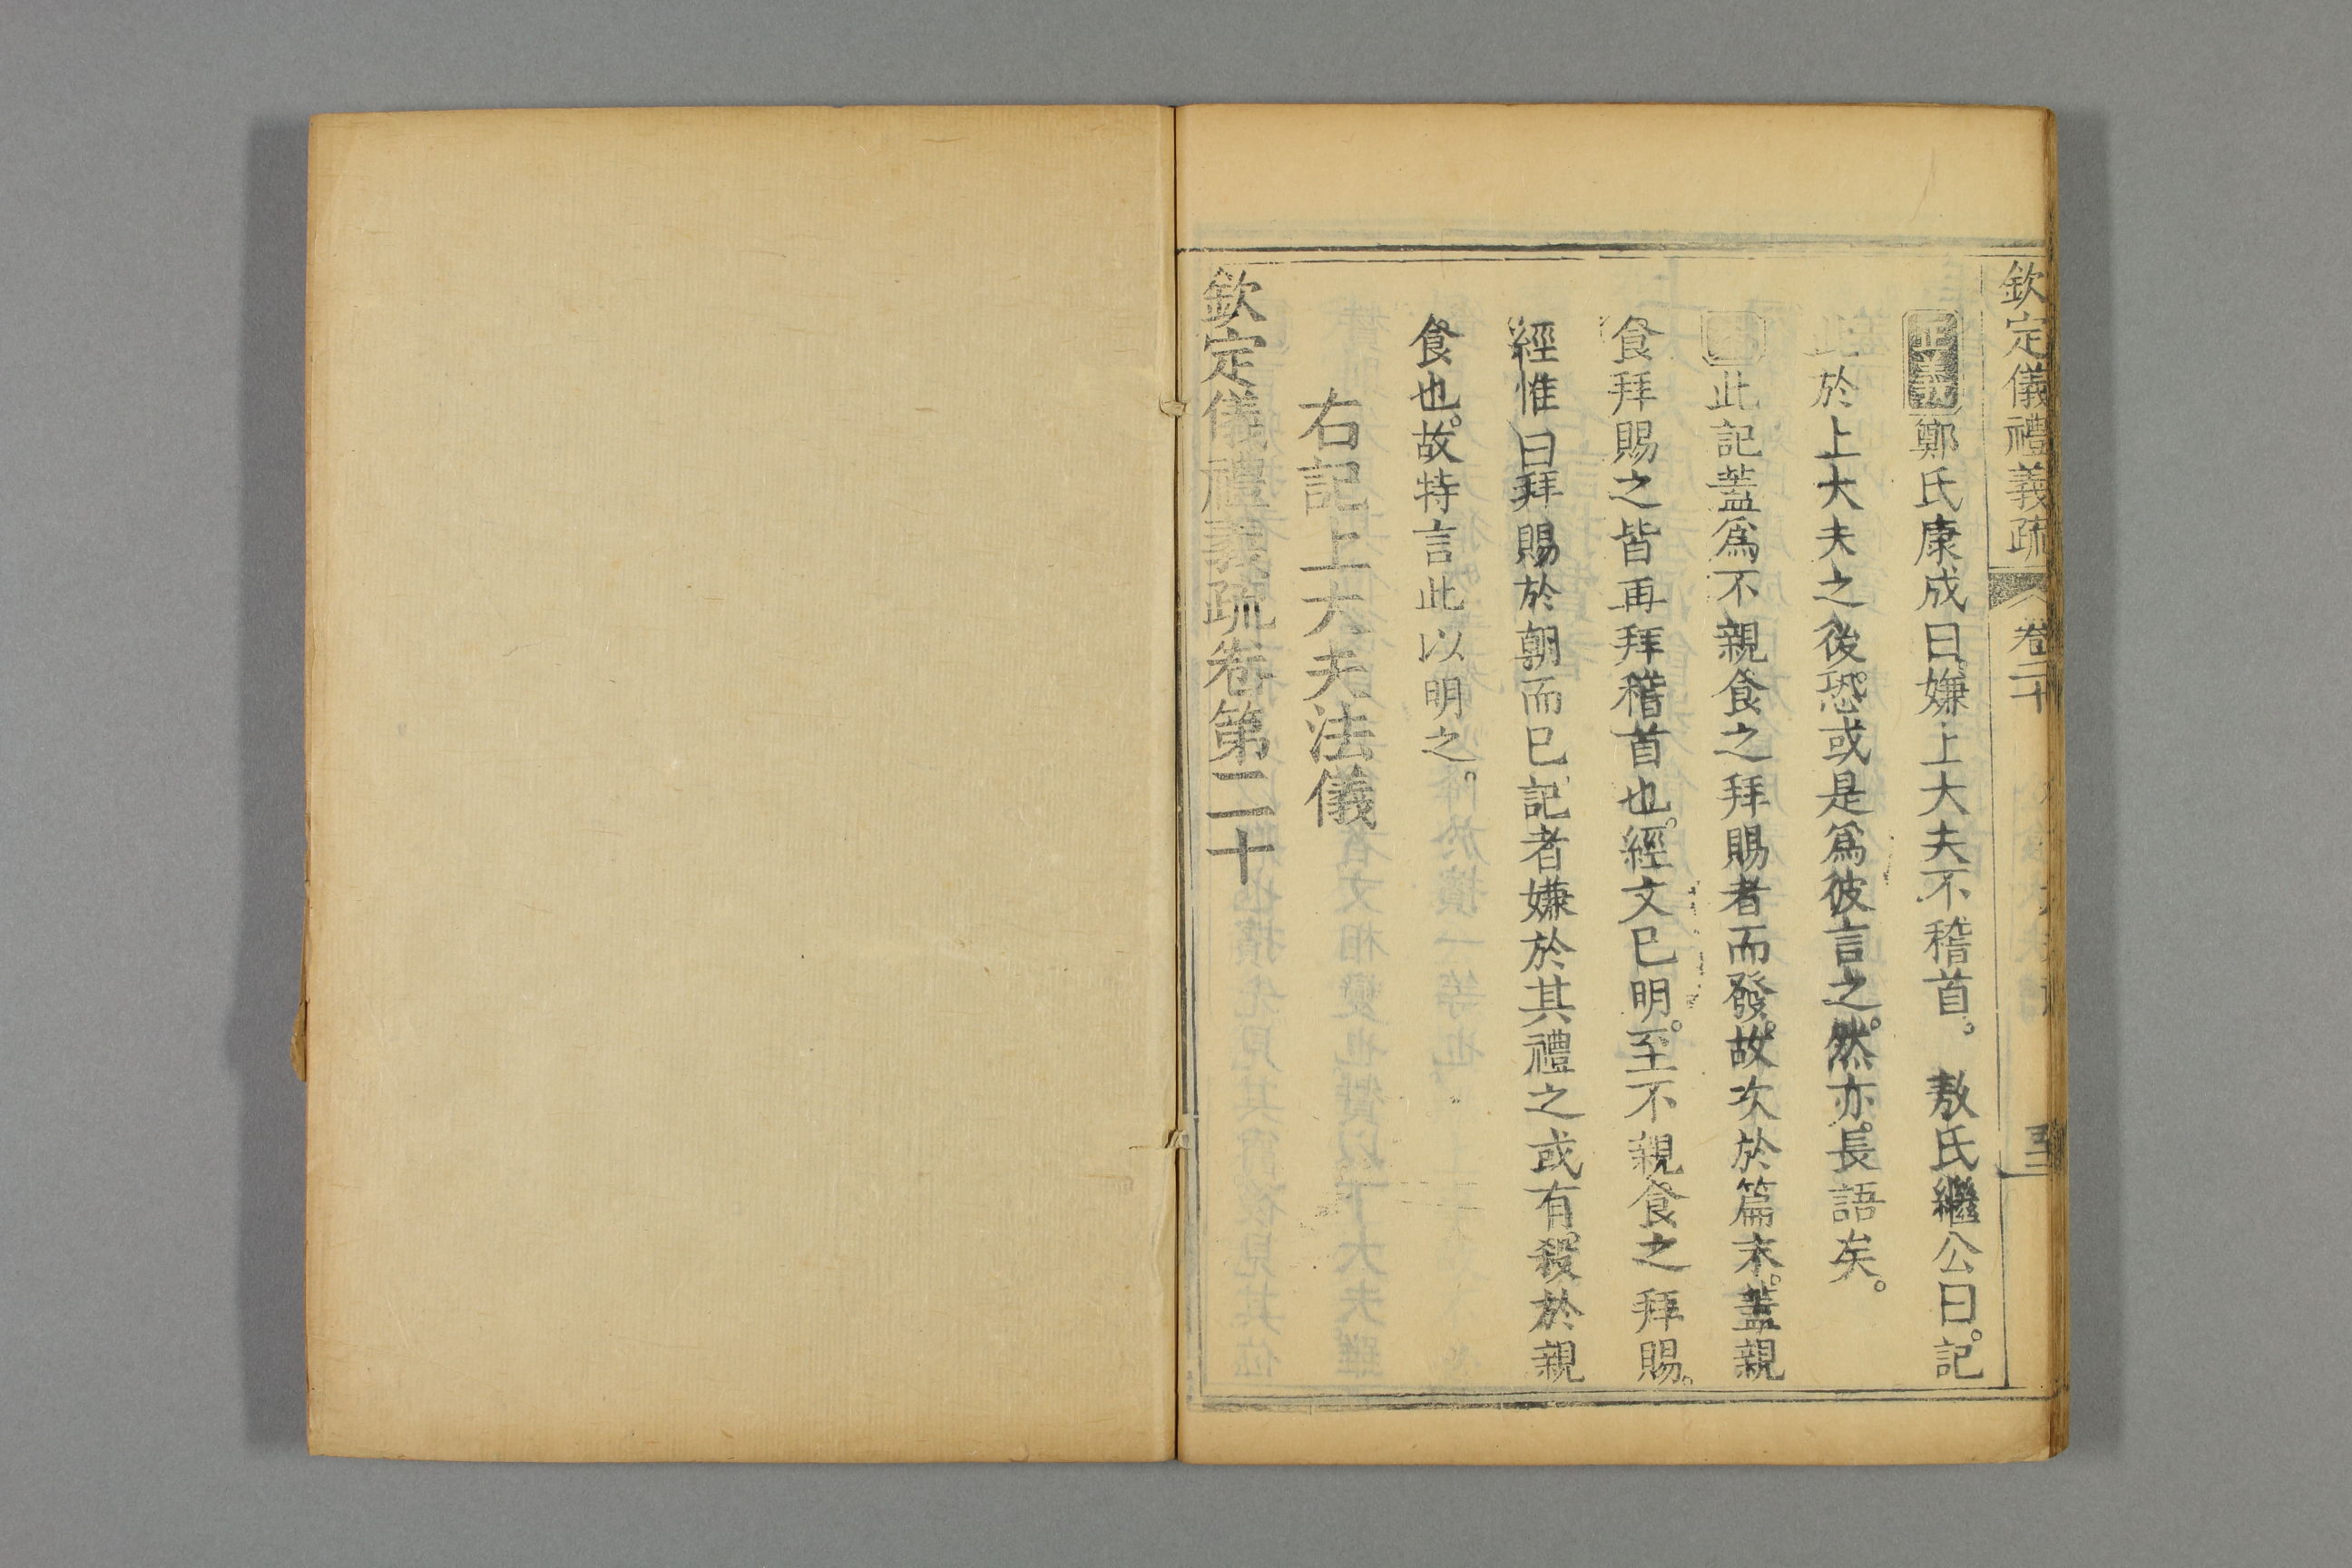 欽定儀禮義疏 卷二十
正義鄭氏康成曰嫌上大夫不稽首。 敖氏繼公曰。記
此於上大夫之後。恐或是爲彼言之。然亦。長語矣。
此記蓋爲不親食之拜賜者而發。故次於篇末。蓋親
食拜賜之皆再拜稽首也。經文已明。至不親食之拜賜。
經惟曰拜賜於朝而已。記者嫌於其禮之或有殺於親
食也。故特言此以明之。
右記上大夫法儀
欽定儀禮義疏卷第二十